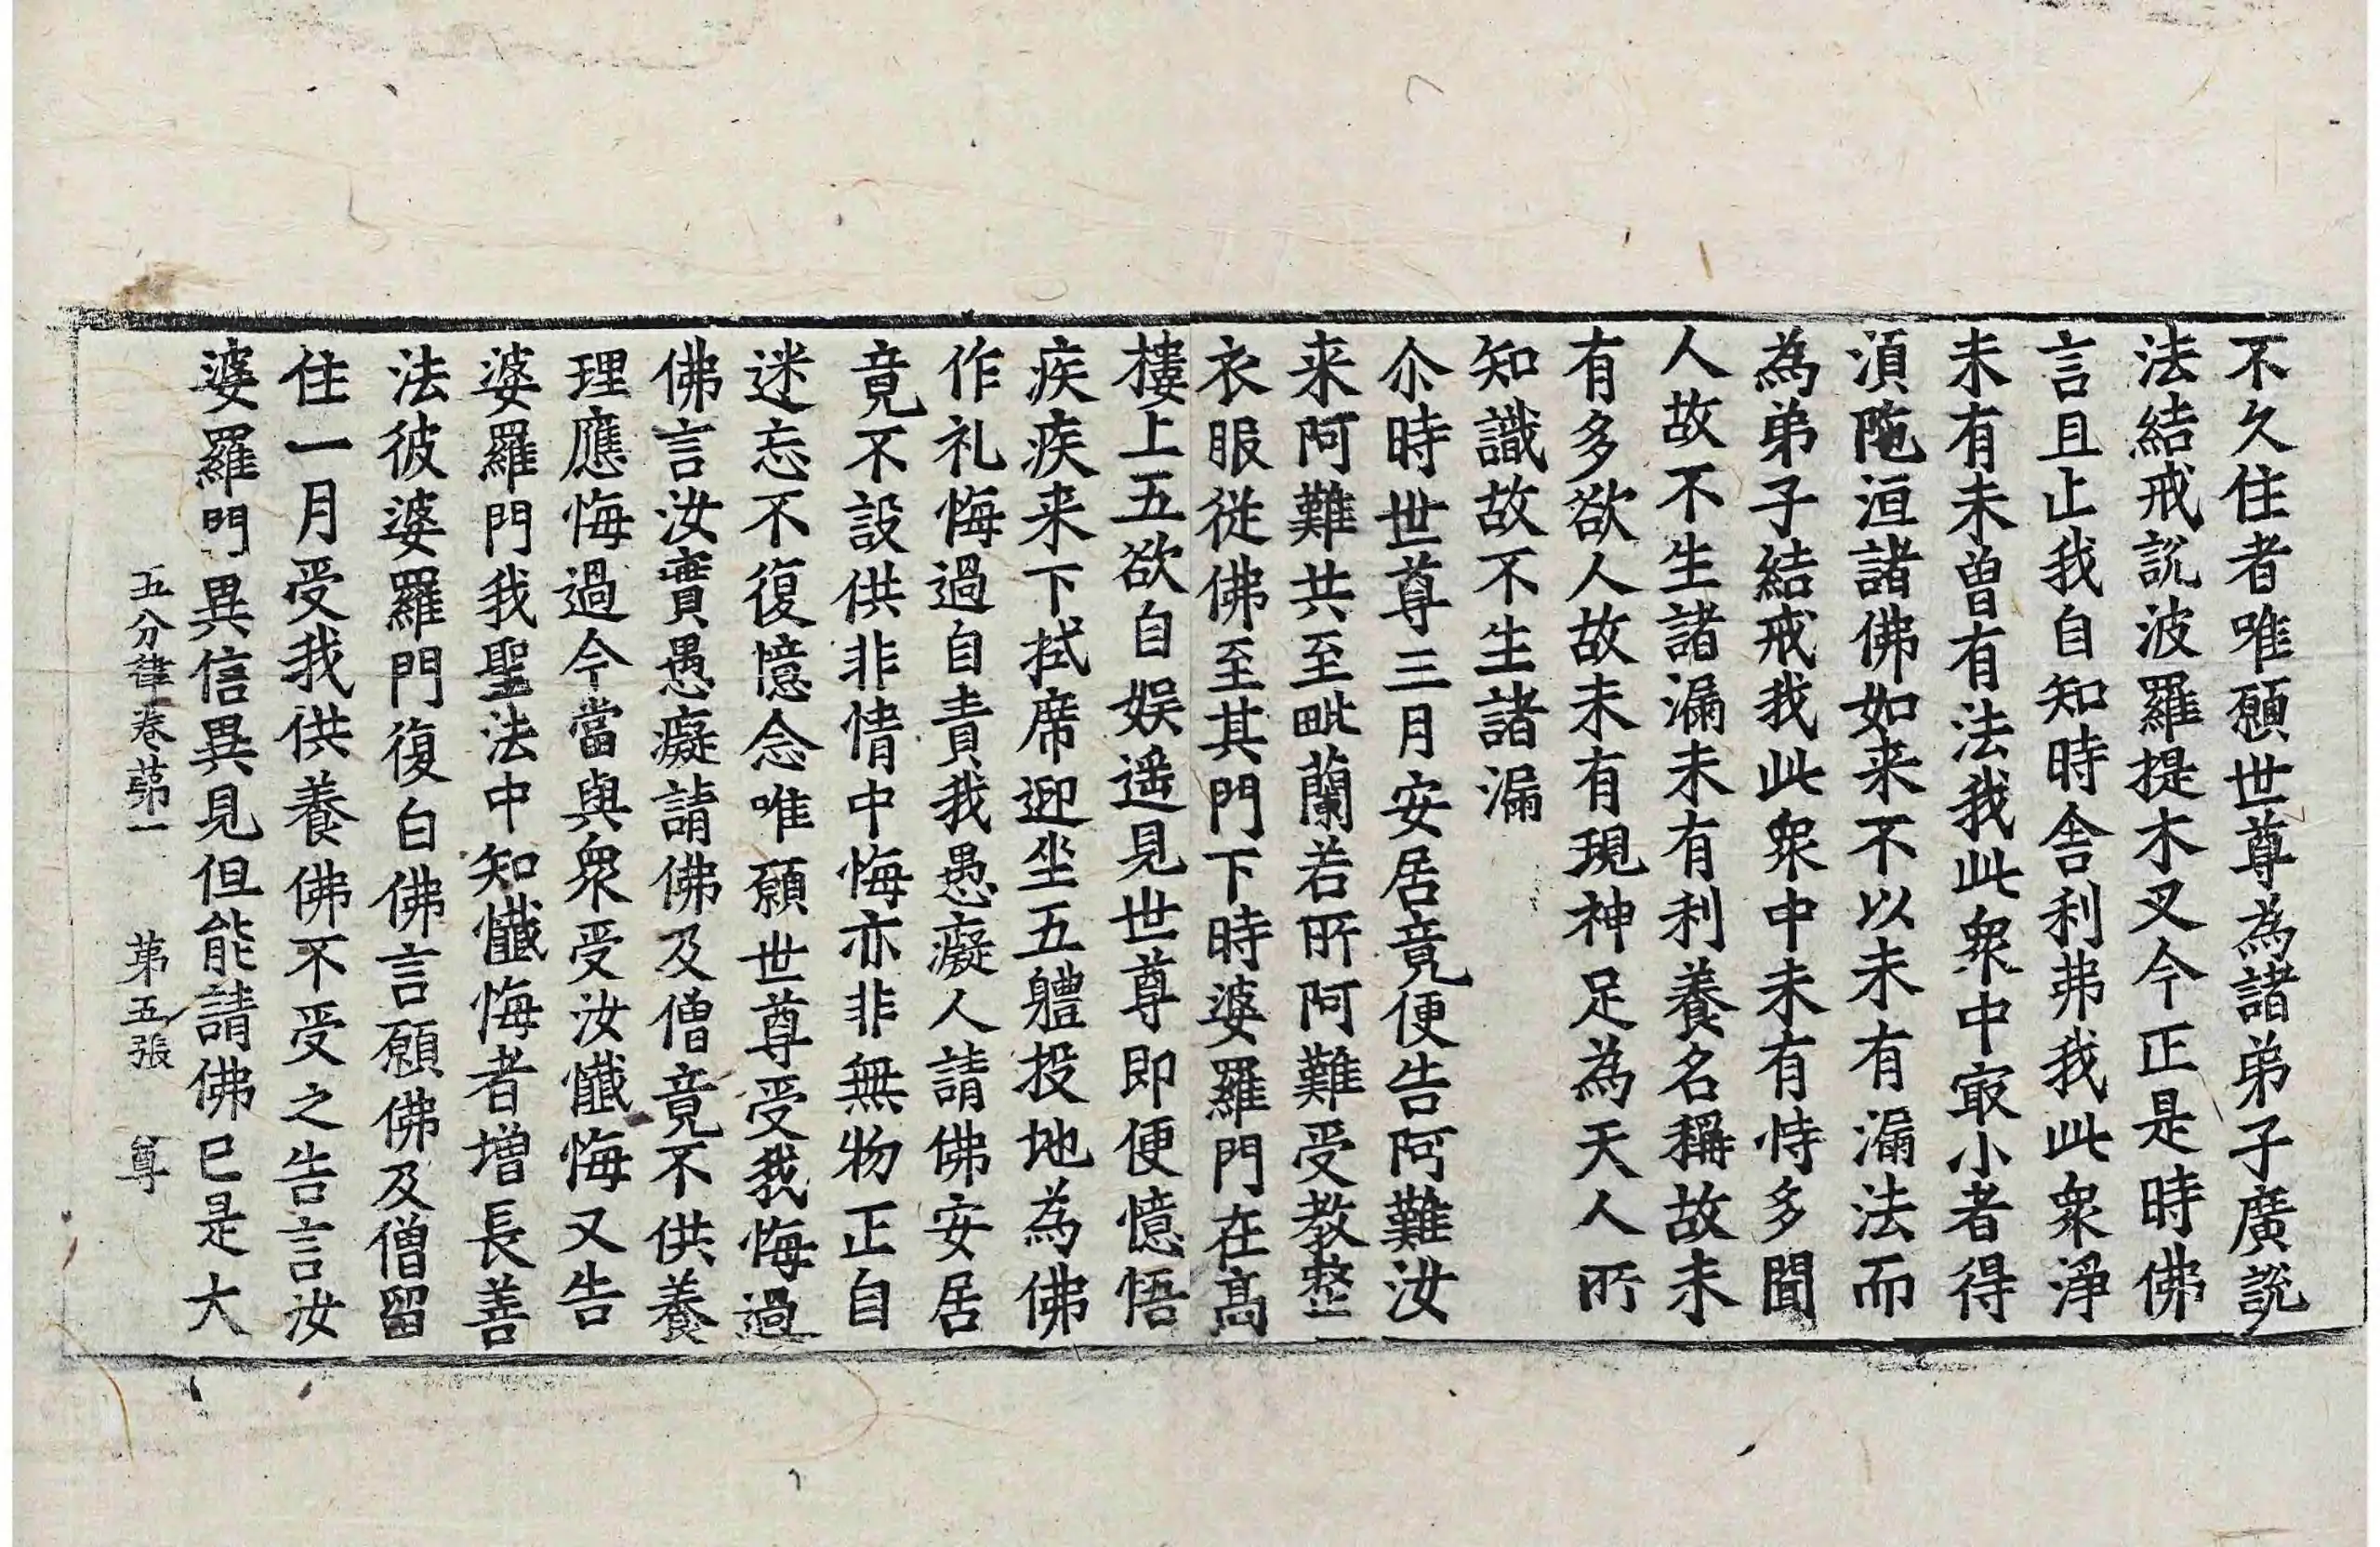 不久住者唯願世尊為諸弟子廣說
法結戒說波羅提木叉今正是時佛
言且止我自知時舍利弗我此衆淨
未有未曾有法我此衆中㝡小者得
湏陁洹諸佛如来不以未有漏法而
為弟子結戒我此衆中未有恃多聞
人故不生諸漏未有利養名稱故未
有多欲人故未有現神足為天人所
知識故不生諸漏
尒時世尊三月安居竟便告阿難汝
来阿難共至毗蘭若所阿難受教整
衣服從佛至其門下時婆羅門在髙
樓上五欲自娛遥見世尊即便憶悟
疾疾来下拭席迎坐五體投地為佛
作礼悔過自責我愚癡人請佛安居
竟不設供非情中悔亦非無物正自
迷忘不復憶念唯願世尊受我悔過
佛言汝實愚癡請佛及僧竟不供養
理應悔過今當與衆受汝懺悔又告
婆羅門我聖法中知懺悔者增長善
法彼婆羅門復白佛言願佛及僧留
住一月受我供養佛不受之告言汝
婆羅門異信異見但能請佛已是大
五分律卷苐一 苐五張 尊